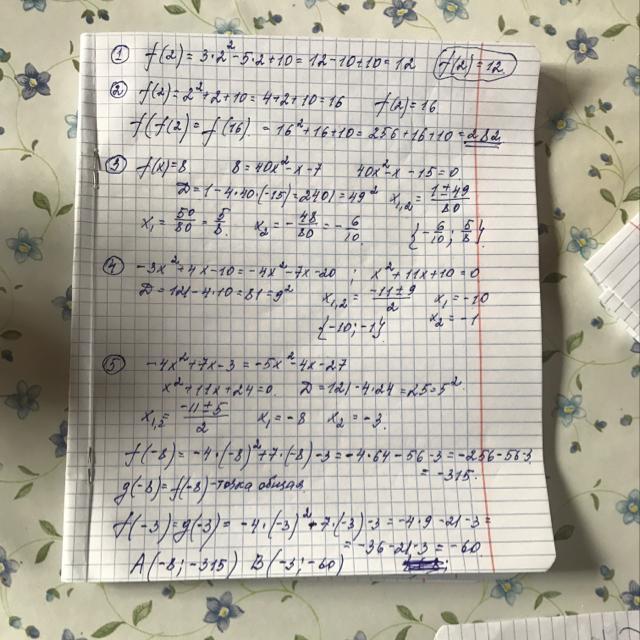 ① f(2)=3·2²-5·2+10=12-10+10=12 f(2)=12
② f(2)=2²+2+10=4+2+10=16 f(2)=16
f(f(2)=f(16) =16²+16+10=256+16+10=282
③ f(x)=8 8=40x²-x-7 40x²-x-15=0
D=1-4·40(-15)=2401=49² x₁,₂=(1±49)/80
x₁=50/80=5/8. x₂=-48/80=-6/10 {-6/10; 5/8}.
④ -3x²+4x-10=-4x²-7x-20 ; x²+11x+10=0
D=121-4·10=81=9² x₁,₂=(-11±9)/2 x₁=-10
{-10;-1}. x₂=-1
⑤ -4x²+7x-3=-5x²-4x-27
x²+11x+24=0. D=121-4·24=25=5².
x₁,₂=(-11±5)/2 x₁=-8 x₂=-3.
f(-8)=-4·(-8)²+7·(-8)-3=-4·64-56-3=-256-56-3
=-315.
g(-8)=f(-8)-точка общая.
f(-3)=g(-3)=-4·(-3)²+7·(-3)-3=-4·9-21-3=
=-36-21-3=-60
A(-8;-315) B(-3;-60)